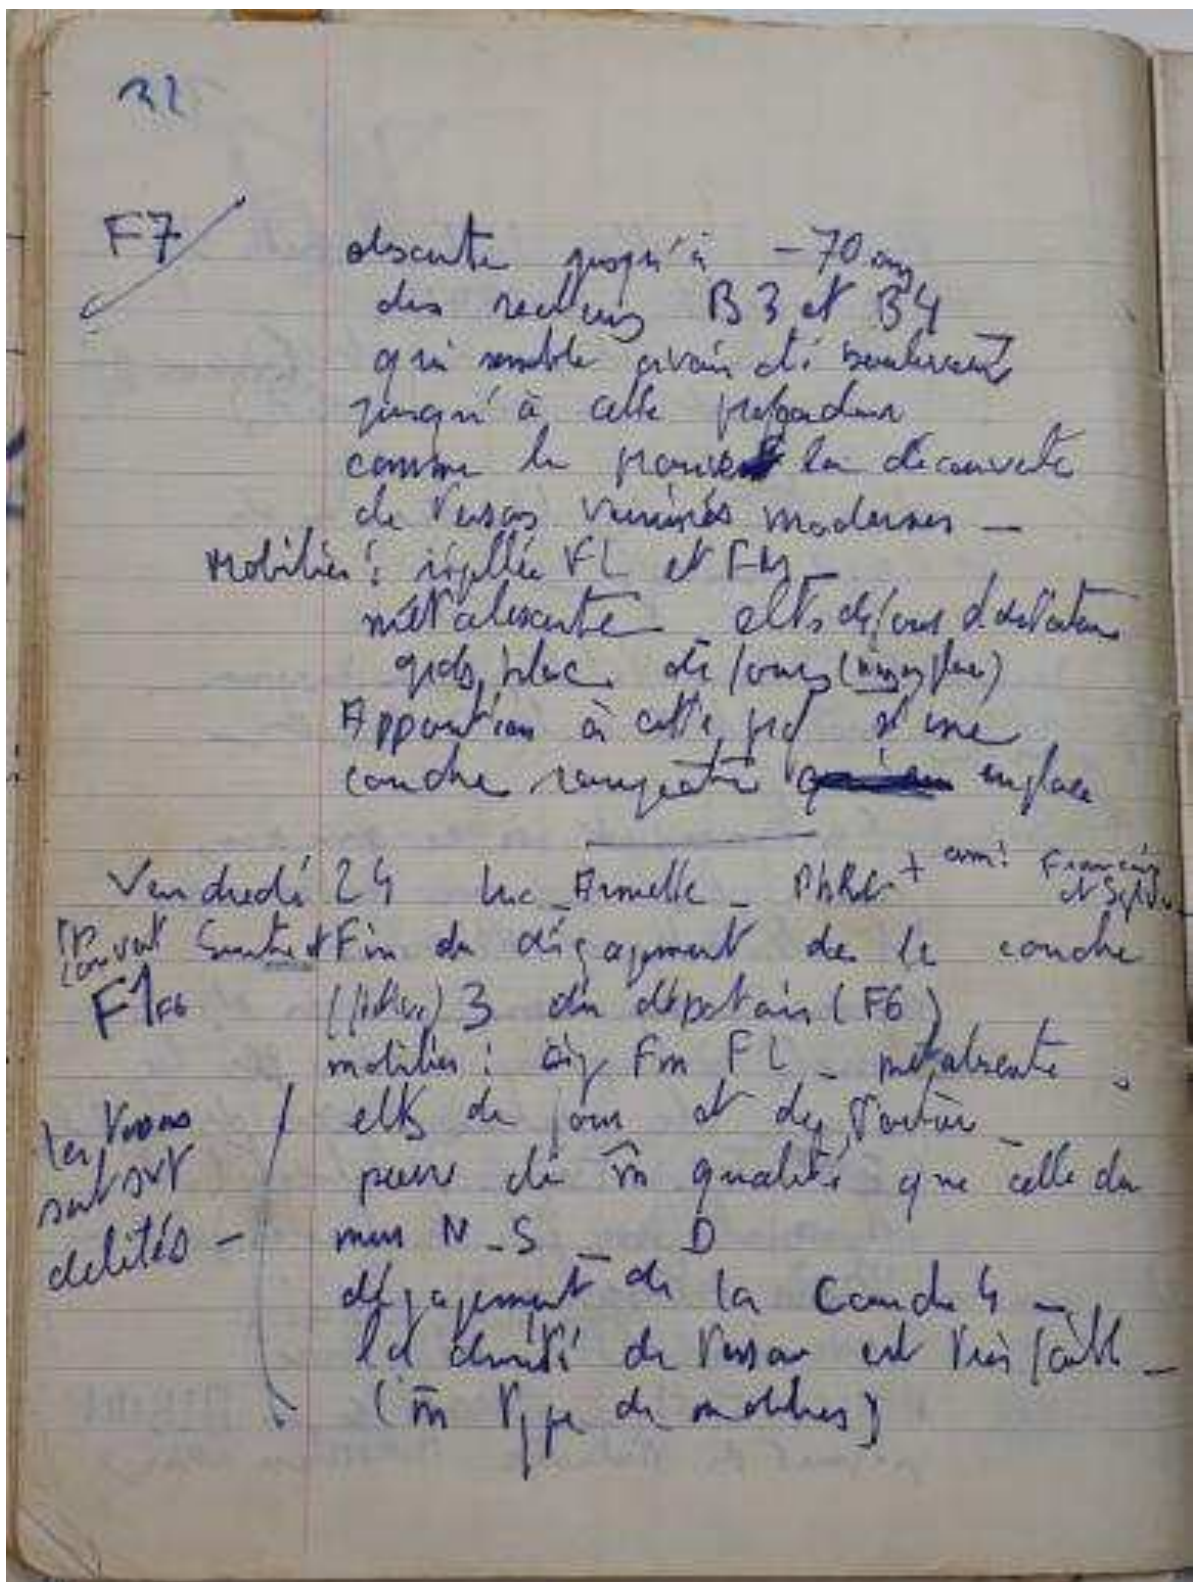 32
F7
descente jusqu'à -70 cm
des secteurs B3 et B4
qui semble avoir été bouleversé
jusqu'à cette profondeur
comme le prouve la découverte
de tessons vernissés modernes -
Mobilier : sigillée FL et FM -
métalescente elts de four
gds, de four
Apparition à cette prof d'une
couche rougeatre en place
Vendredi 24 Luc - Armelle - PhRG + ami: Francin et
F1 F6
Fin du dégagement de la couche
3 du dépotoir (F6)
mobilier : sig Fm FL - metalescente -
elts de four et de
les tessons
sont
délités -
pierre de m̄ qualité que celle du
mur N-S - D
dégagement de la Couche 4 -
la densité de tesson est très faible -
(m̄ type de mobilier)